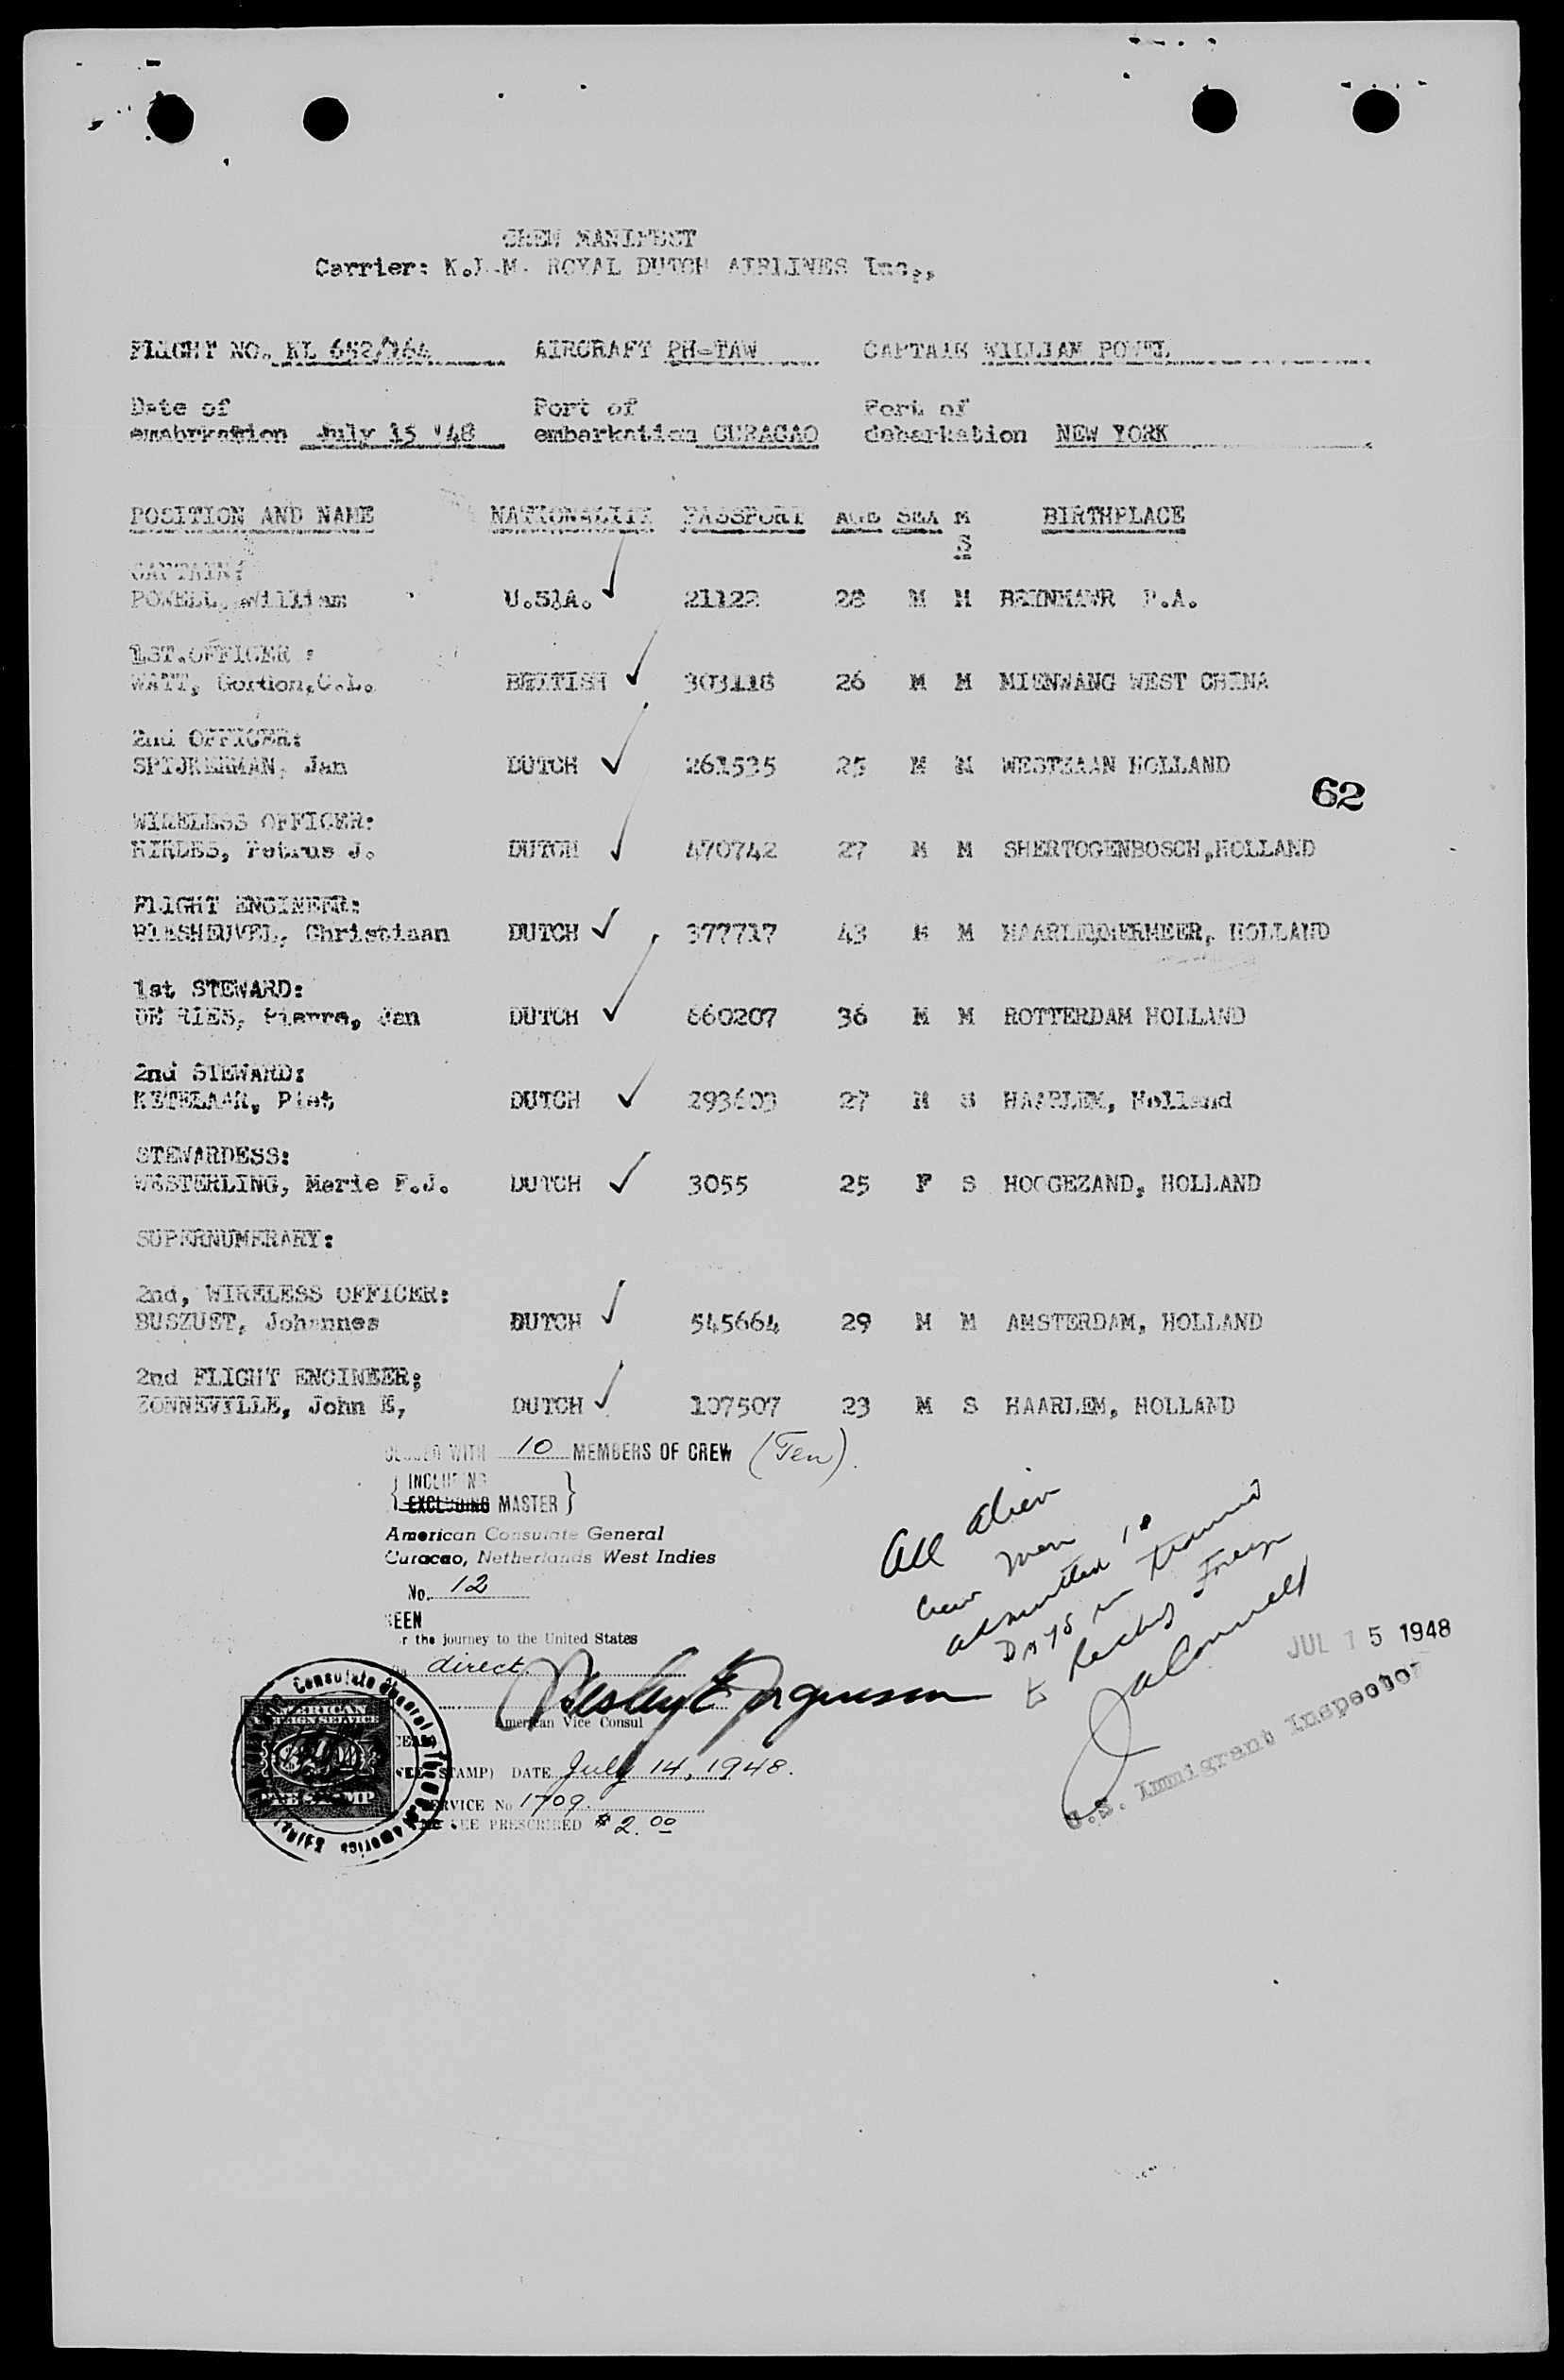 CREW MANIFEST
Carrier: K.L.M. ROYAL DUTCH AIRLINES Inc.,
FLIGHT NO. KL 652/264 AIRCRAFT PH-TAW CAPTAIN WILLIAM
Date of Port of Port of
July 15 '48 embarkation CURACAO debarkation NEW YORK
POSITION AND NAME NATIONALITY PASSPORT AGE SEX M BIRTHPLACE
S
CAPTAIN:
POWELL, William U.S.A. 21122 28 M M P.A.
1ST.OFFICER :
WATT, Gordon,C.L. BRITISH 303118 26 M M MIENWANG WEST CHINA
2nd OFFICER:
SPIJKERMAN, Jan DUTCH 261535 25 M M WESTZAAN HOLLAND
62
WIRELESS OFFICER:
Petrus J. DUTCH 470742 27 M M SHERTOGENBOSCH,HOLLAND
FLIGHT ENGINEER:
BLASHEUVEL, Christiaan DUTCH 377717 43 M M HOLLAND
1st STEWARD:
DE RIES, Pierre, Jan DUTCH 660207 36 M M ROTTERDAM HOLLAND
2nd STEWARD:
KETELAAR, Piet DUTCH 293603 27 M S HAARLEM, Holland
STEWARDESS:
WESTERLING, Marie F.J. DUTCH 3055 25 F S HOOGEZAND, HOLLAND
SUPERNUMERARY:
2nd, WIRELESS OFFICER:
BUSZUET, Johannes DUTCH 545664 29 M M AMSTERDAM, HOLLAND
2nd FLIGHT ENGINEER;
ZONNEVILLE, John E, DUTCH 107507 23 M S HAARLEM, HOLLAND
WITH 10 MEMBERS OF CREW (Ten).
INCLUDING
EXCLUDING MASTER
American Consulate General
Curacao, Netherlands West Indies
No. 12
SEEN
r the journey to the United States
direct.
American Vice Consul
STAMP) DATE July 14, 1948.
SERVICE No 1709.
FEE PRESCRIBED $ 2.00
All alien
crew men
admitted
Days in
to Foreign
JUL 15 1948
U.S. Immigrant Inspector